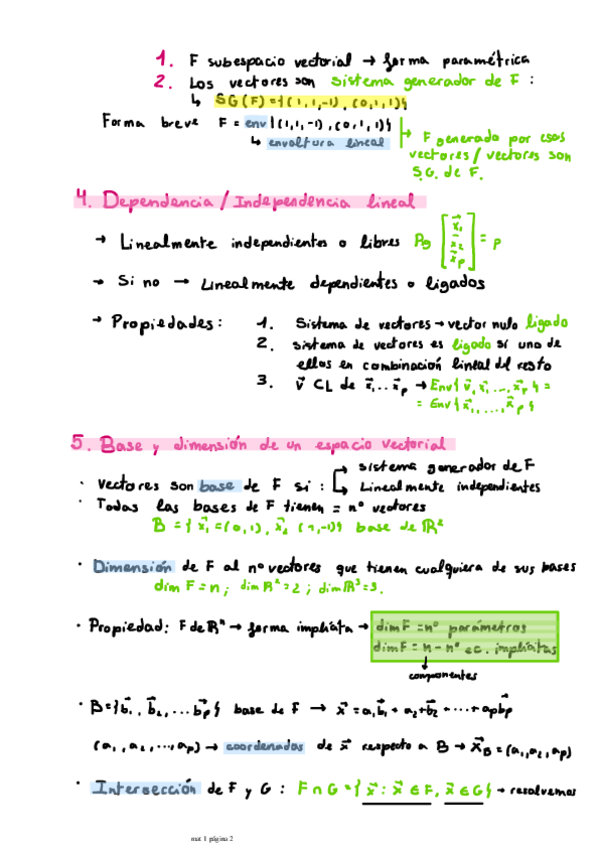 1. F subespacio vectorial → forma paramétrica
2. Los vectores son sistema generador de F :
↳ SG(F)={(1,1,-1), (0,1,1)}
Forma breve F = env{(1,1,-1), (0,1,1)}
→ F generado por esos
↳ envoltura lineal
vectores / vectores son
S.G. de F.
4. Dependencia / Independencia lineal
→ Linealmente independientes o libres Rg [x⃗1 x⃗2 x⃗p] = p
→ Si no → Linealmente dependientes o ligados
→ Propiedades: 1. Sistema de vectores → vector nulo ligado
2. sistema de vectores es ligado si uno de
ellos en combinación lineal del resto
3. v⃗ CL de x⃗1...x⃗p → Env{v⃗, x⃗1, ..., x⃗p} =
= Env{x⃗1, ..., x⃗p}
5. Base y dimensión de un espacio vectorial
→ sistema generador de F
· Vectores son base de F si :
↳ Linealmente independientes
· Todas las bases de F tienen = nº vectores
B = {x⃗1=(0,1), x⃗2 (1,-1)} base de ℝ²
· Dimensión de F al nº vectores que tienen cualquiera de sus bases
dim F = n ; dim ℝ² = 2 ; dim ℝ³ = 3.
· Propiedad: F de ℝⁿ → forma implícita → dim F = nº parámetros
dim F = n - nº ec. implícitas
↓
componentes
· B={b⃗1, b⃗2, ... b⃗p} base de F → x⃗ = a1b⃗1 + a2+b⃗2 + ... + apb⃗p
(a1, a2, ..., ap) → coordenadas de x⃗ respecto a B → x⃗B = (a1, a2, ap)
· Intersección de F y G : F ∩ G = {x⃗ : x⃗ ∈ F, x⃗ ∈ G} → resolvemos
mat 1 página 2